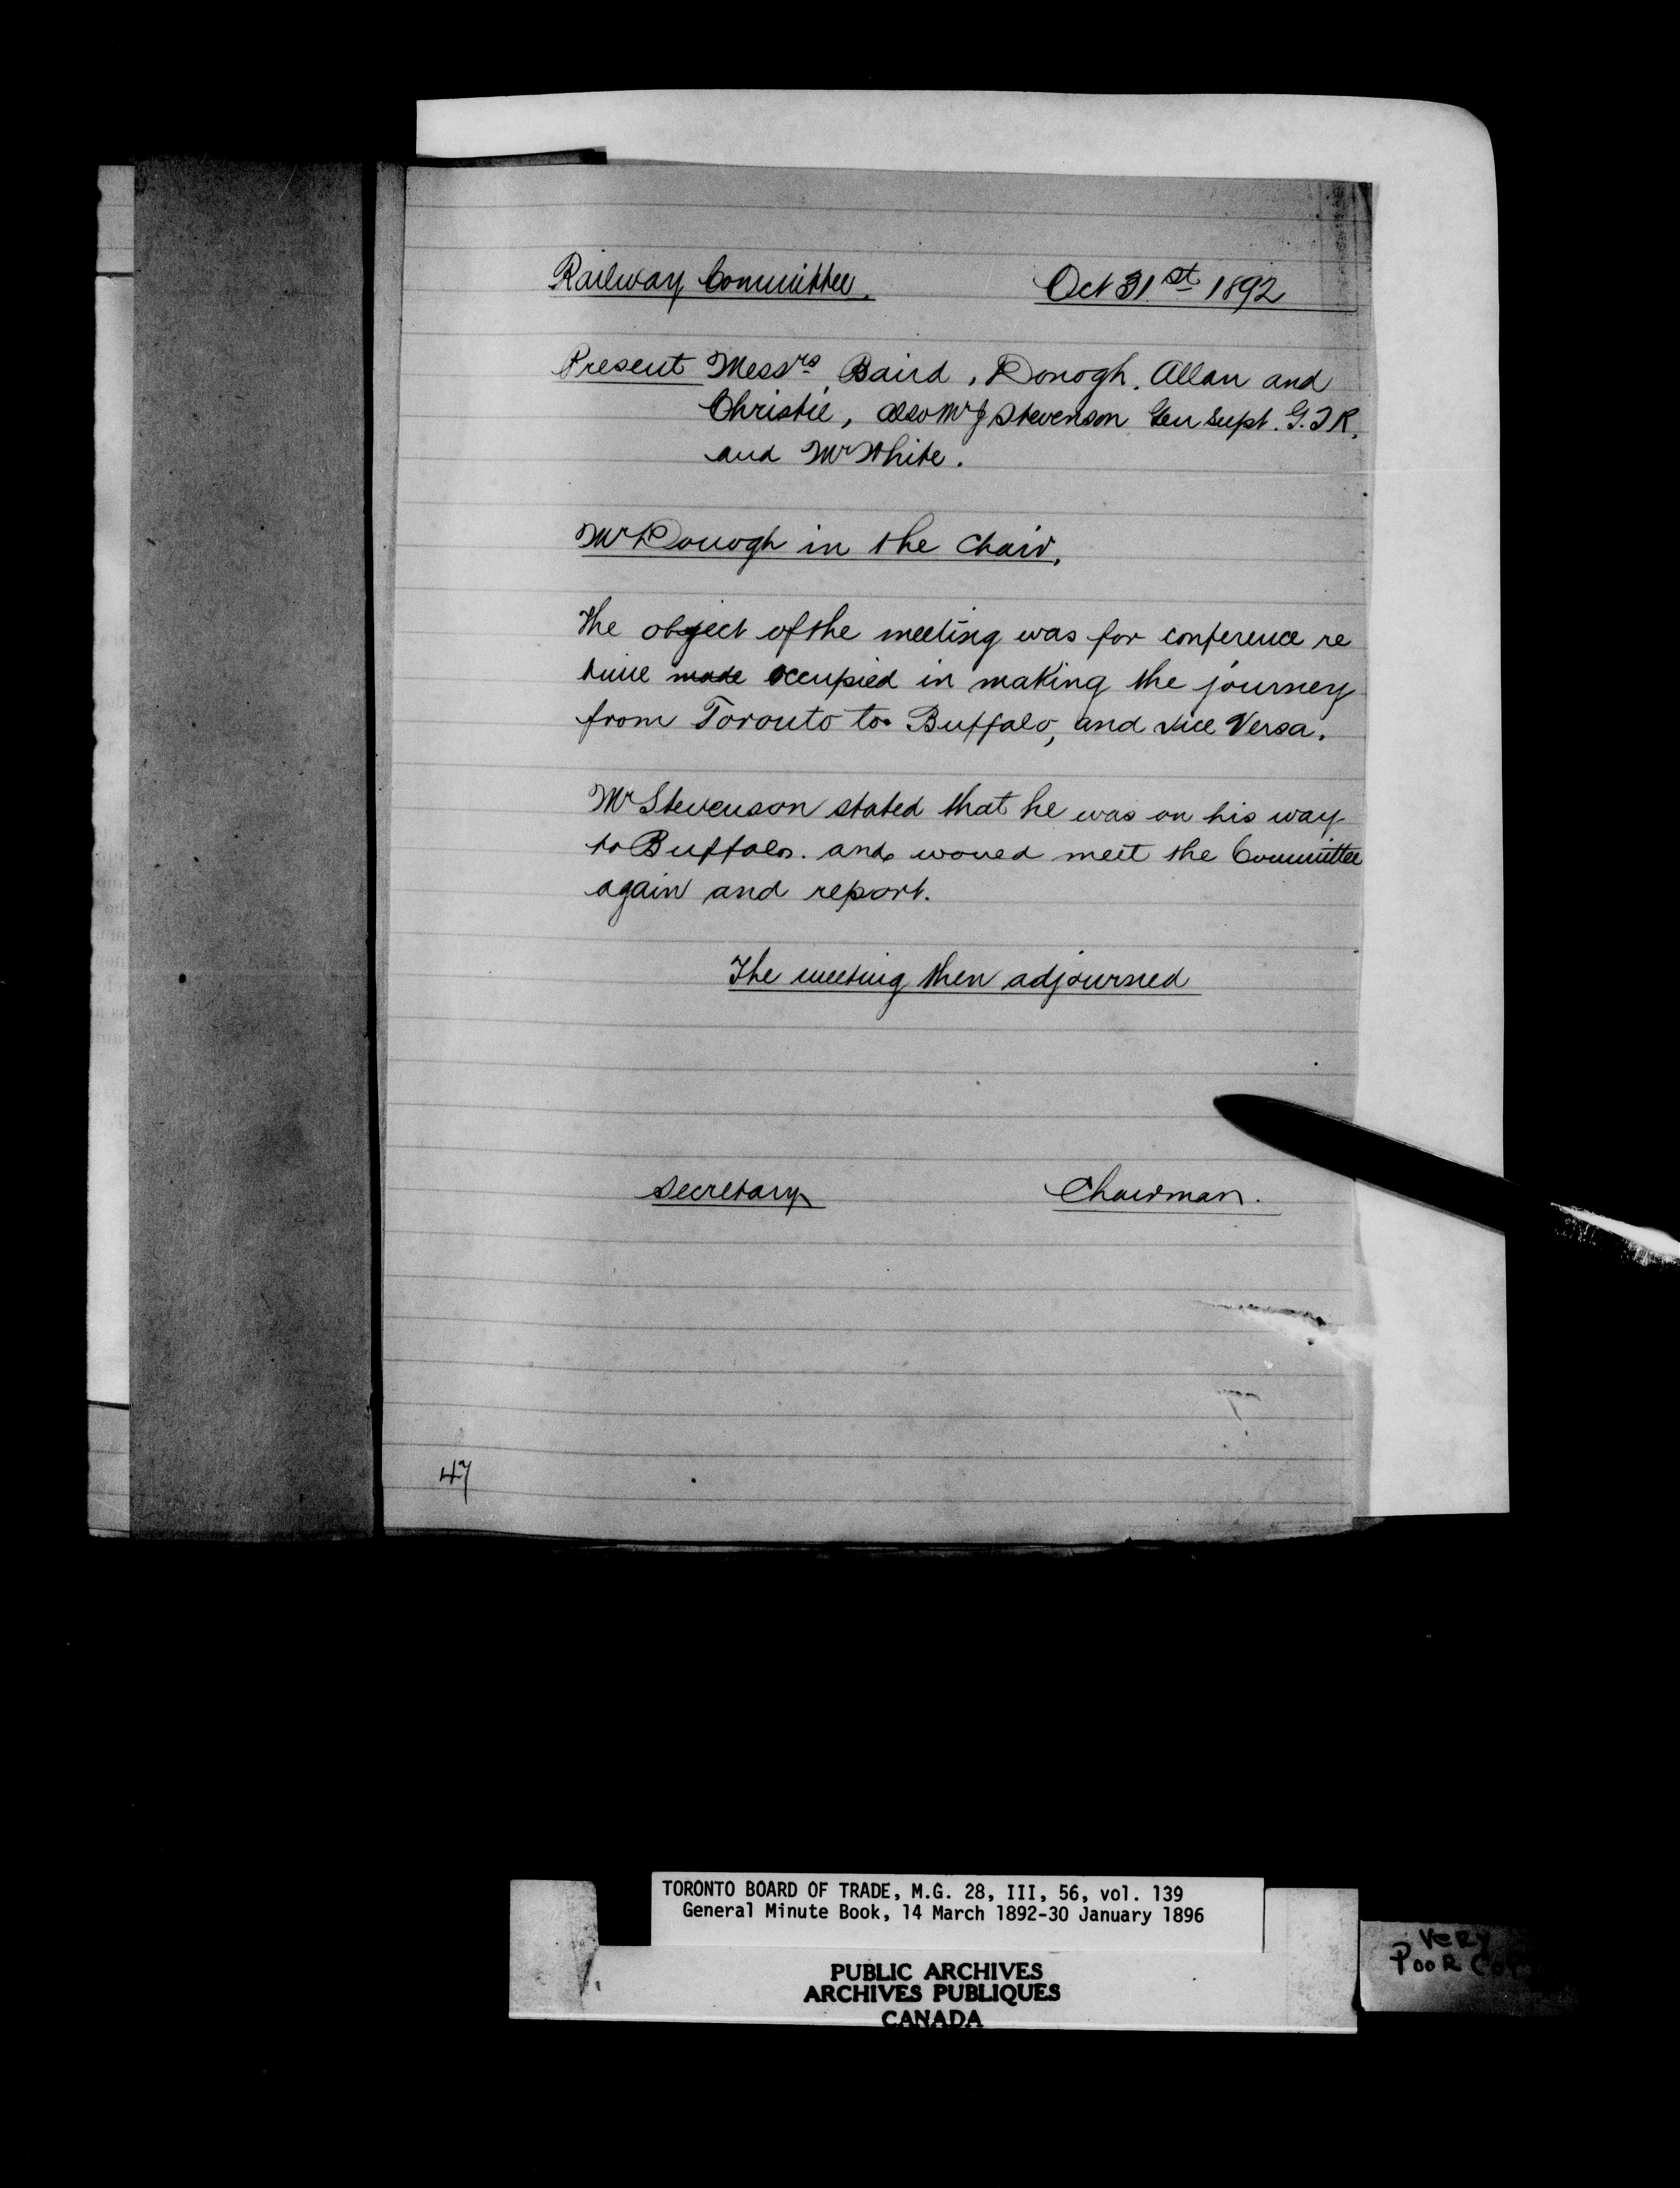 Railway Committee. Oct 31st 1892
Present Messrs Baird, Donogh. Allan and
Christie, also Mr J Stevenson Gen Supt. G.T.R.
and Mr White.
Mr Donogh in the Chair.
The object of the meeting was for conference re
time made occupied in making the journey
from Toronto to Buffalo, and vice Versa.
Mr Stevenson stated that he was on his way
to Buffalo. and would meet the Committee
again and report.
The meeting then adjourned
Secretary Chairman.
47
TORONTO BOARD OF TRADE, M.G. 28, III, 56, vol. 139
General Minute Book, 14 March 1892-30 January 1896
PUBLIC ARCHIVES
ARCHIVES PUBLIQUES
CANADA
VERY
POOR